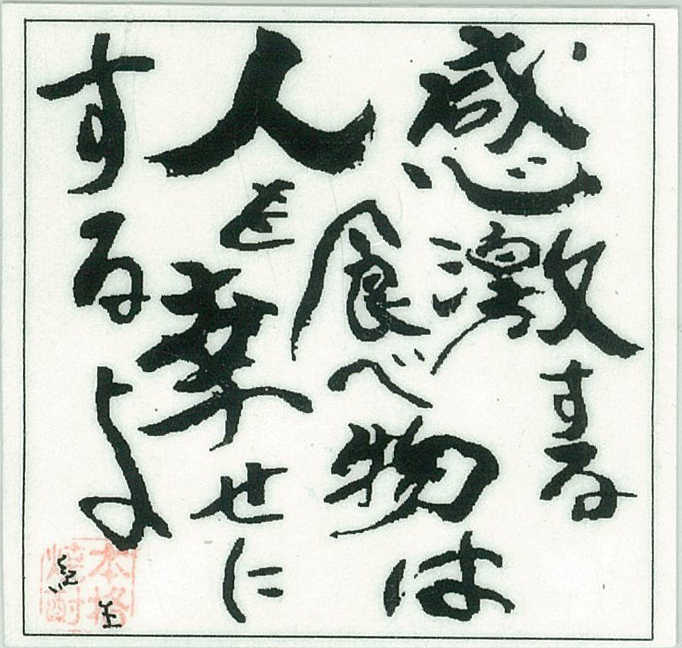 感激する
食べ物は
人を幸せに
するよ
本格
焼酎